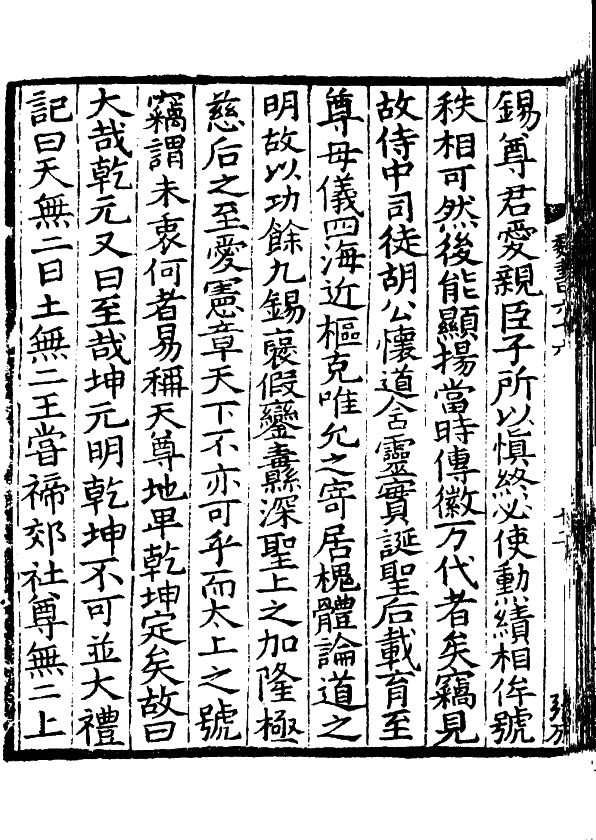 錫尊君愛親臣子所以愼終必使勳績相侔號
秩相可然後能顯揚當時傳徽万代者矣竊見
故侍中司徒胡公懷道含靈實誕聖后載育至
尊母儀四海近樞克唯允之寄居槐體論道之
明故以功餘九錫褒假鑾纛縣深聖上之加隆極
慈后之至愛憲章天下不亦可乎而太上之號
竊謂未衷何者易稱天尊地卑乾坤定矣故曰
大哉乾元又曰至哉坤元明乾坤不可並大禮
記曰天無二日土無二王嘗禘郊社尊無二上
魏書六十六
十二